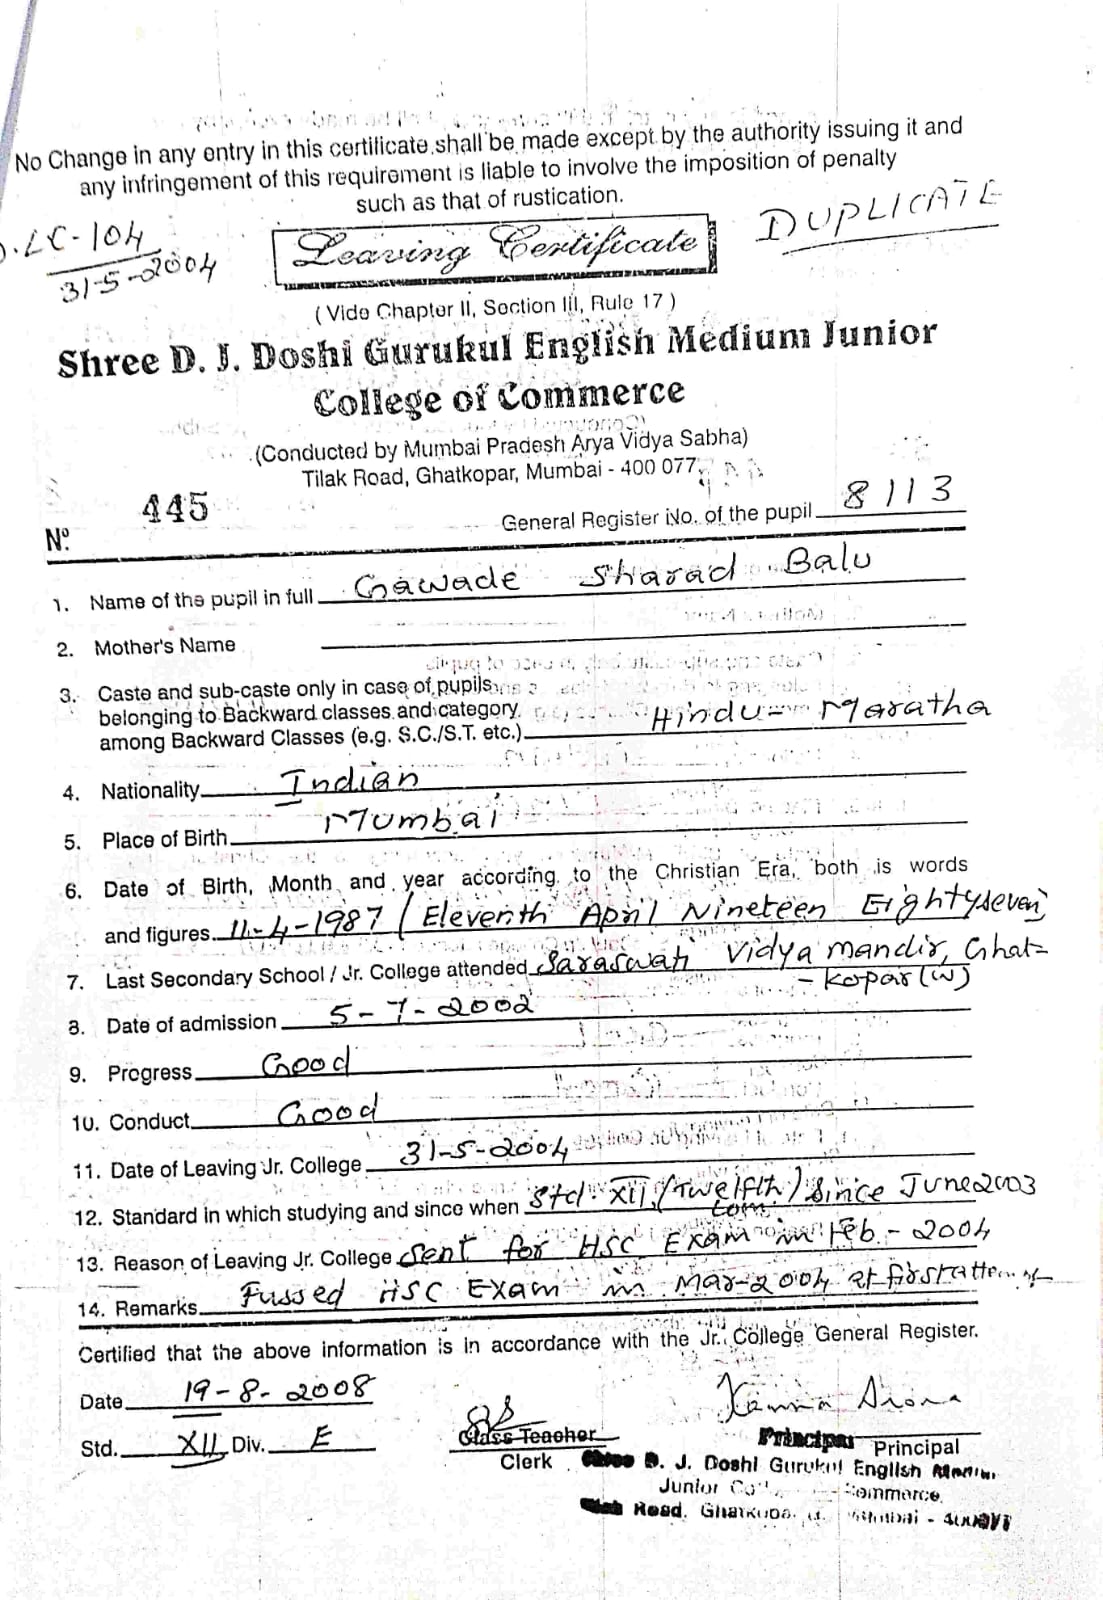 No Change in any entry in this certificate shall be made except by the authority issuing it and
any infringement of this requirement is liable to involve the imposition of penalty
such as that of rustication.
DUPLICATE
LC-104
31-5-2004
Leaving Certificate
( Vide Chapter II, Section III, Rule 17 )
Shree D. J. Doshi Gurukul English Medium Junior
College of Commerce
(Conducted by Mumbai Pradesh Arya Vidya Sabha)
Tilak Road, Ghatkopar, Mumbai - 400 077.
Nº 445
General Register No. of the pupil 8113
1. Name of the pupil in full Gawade Sharad Balu
2. Mother's Name
3. Caste and sub-caste only in case of pupils
belonging to Backward classes and category
among Backward Classes (e.g. S.C./S.T. etc.) Hindu - Maratha
4. Nationality Indian
5. Place of Birth Mumbai
6. Date of Birth, Month and year according to the Christian Era, both is words
and figures 11-4-1987 / Eleventh April Nineteen Eightyseven
7. Last Secondary School / Jr. College attended Saraswati Vidya mandir, Ghat-
- kopar (W)
8. Date of admission 5-7-2002
9. Progress Good
10. Conduct Good
11. Date of Leaving Jr. College 31-5-2004
12. Standard in which studying and since when Std. XII, (Twelfth) Since June 2003
Com
13. Reason of Leaving Jr. College Sent for HSC Exam in Feb - 2004
14. Remarks Fussed HSC Exam in Mar-2004 at first attempt
Certified that the above information is in accordance with the Jr. College General Register.
Date 19-8-2008
Std. XII Div. E
Class Teacher
Clerk
Principal Principal
D. J. Doshi Gurukul English
Junior Commerce
Road, Ghatkopar